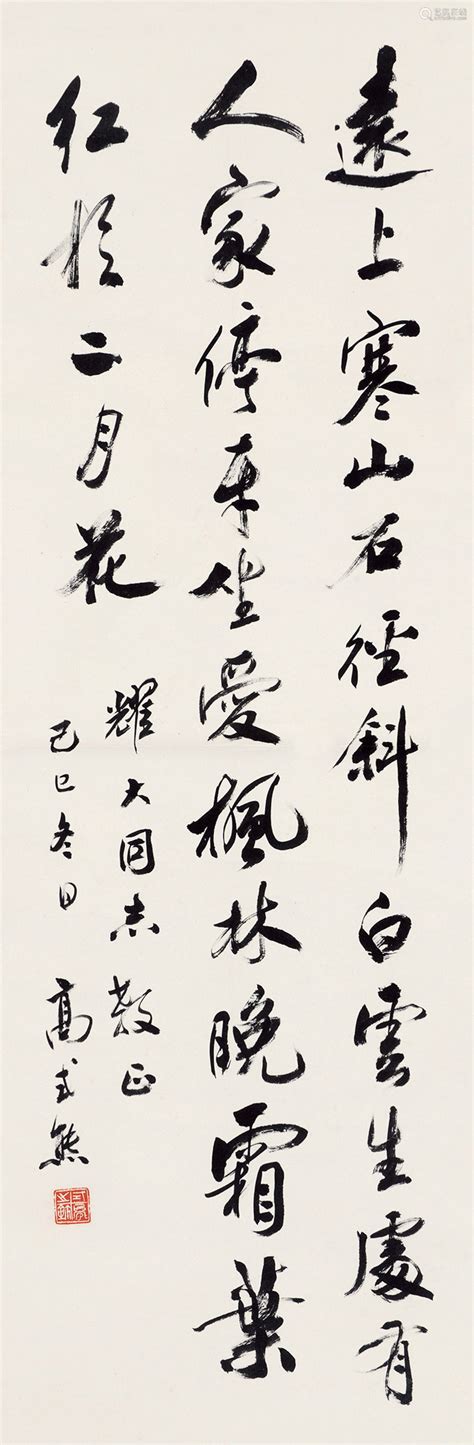 遠上寒山石徑斜白雲生處有
人家停車坐愛楓林晚霜葉
红於二月花
耀大同志教正
己巳冬日 高式熊